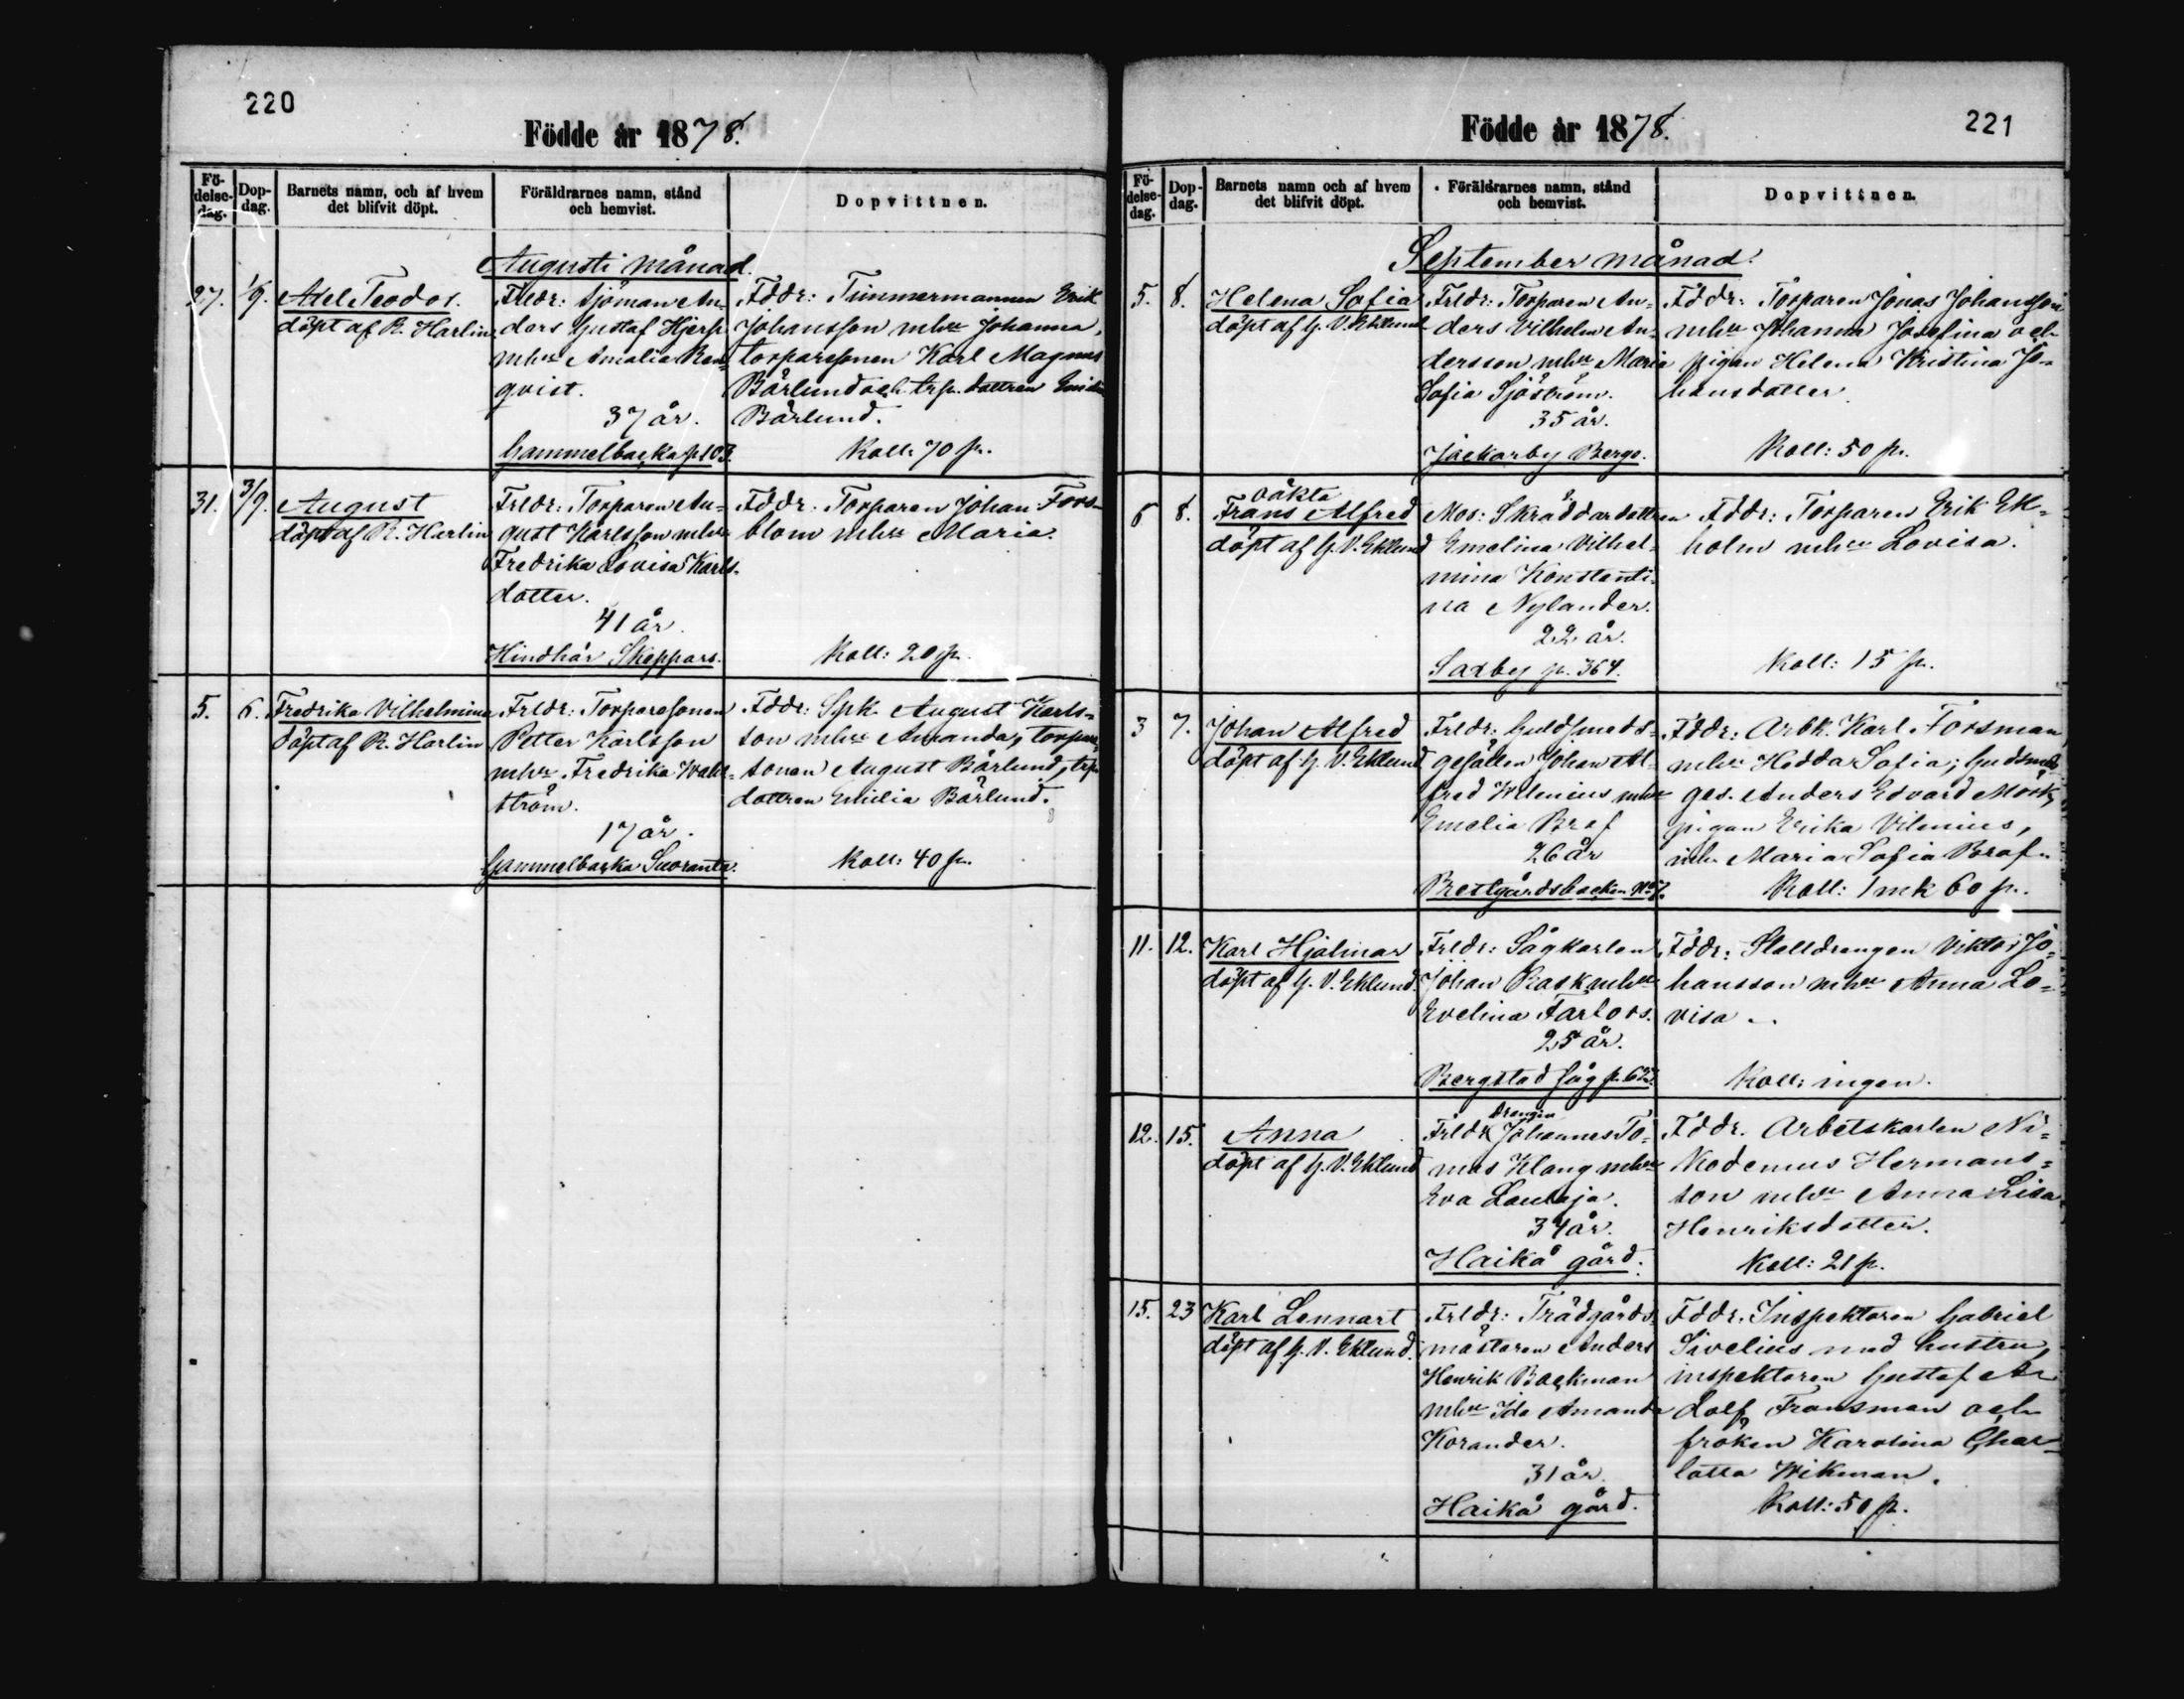 220
Födde år 1878.
Fö-
delse-
dag.
Dop-
dag.
Barnets namn, och af hvem
det blifvit döpt.
Föräldrarnes namn, stånd
och hemvist.
Dopvittnen.
Augusti månad.
27. 1/9. Axel Teodor.
döpt af R. Harlin
Frldr: Sjöman An-
ders Gustaf Hjerp
mhu Amalia Ren-
qvist.
37 år.
Gammelbacka p 103.
Fddr: Timmermannen Erik
Johansson mhu Johanna,
torparesonen Karl Magnus
Bärlund och trp. dottren
Bärlund.
Koll: 70 p.
31. 3/9. August
döpt af R. Harlin
Frldr: Torparen Au-
gust Karlsson mhu
Fredrika Lovisa Karls-
dotter.
41 år.
Hindhår Skeppars.
Fddr: Torparen Johan Fors-
blom mhu Maria.
Koll: 20 p.
5. 6. Fredrika Vilhelmina
döpt af R. Harlin
Frldr: Torparesonen
Petter Karlsson
mhu Fredrika Wahl-
ström.
17 år.
Gammelbacka Suoranta.
Fddr: Spk. August Karls-
son mhu Amanda, torpare-
sonen August Bärlund, trp
dottren Emilia Bärlund.
Koll: 40 p.
Födde år 1878.
221
Fö-
delse-
dag.
Dop-
dag.
Barnets namn och af hvem
det blifvit döpt.
Föräldrarnes namn, stånd
och hemvist.
Dopvittnen.
September månad.
5. 8. Helena Sofia
döpt af G. V. Eklund
Frldr: Torparen An-
ders Vilhelm An-
dersson mhu Maria
Sofia Sjöström.
35 år.
Jackarby Berga.
Fddr: Torparen Jonas Johansson
mhu Johanna Josefina och
pigan Helena Kristina Jo-
hansdotter.
Koll: 50 p.
6 8. oäkta
Frans Alfred
döpt af G. V. Eklund
Mor: Skräddardottren
Emelina Vilhel-
mina Konstanti-
na Nylander.
22 år.
Saxby p. 364.
Fddr: Torparen Erik Ek-
holm mhu Lovisa.
Koll: 15 p.
3 7. Johan Alfred
döpt af G. V. Eklund
Frldr: Guldsmeds-
gesällen Johan Al-
fred Wilenius mhu
Emelia Braf
26 år
Prestgårdsbacken No 7.
Fddr: Arbk. Karl Forsman
mhu Hedda Sofia; Guldsmeds
ges. Anders Edvard Mörk,
pigan Erika Vilenius,
Maria Sofia Braf.
Koll: 1 mk 60 p.
11. 12. Karl Hjalmar
döpt af G. V. Eklund.
Frldr: Sågkarlen
Johan Rask mhu
Evelina Farlors.
25 år.
Bergstad såg p. 627.
Fddr: Stalldrängen Viktor Jo-
hansson mhu Anna Lo-
visa.
Koll: ingen.
12. 15. Anna
döpt af G. V. Eklund
drängen
Frldr Johannes To-
mas Klang mhu
Eva Laulaja.
34 år.
Haikå gård.
Fddr. Arbetskarlen Ni-
kodemus Hermans-
son mhu Anna Lisa
Henriksdotter.
Koll: 21 p.
15. 23 Karl Lennart
döpt af G. V. Eklund.
Frldr: Trädgårds-
mästaren Anders
Henrik Backman
mhu Ida Amanda
Korander.
31 år.
Haikå gård.
Fddr. Inspektoren Gabriel
Sivelius med hustru,
inspektoren Gustaf A-
dolf Fransman och
fröken Karolina Char-
lotta Wikman.
Koll: 50 p.